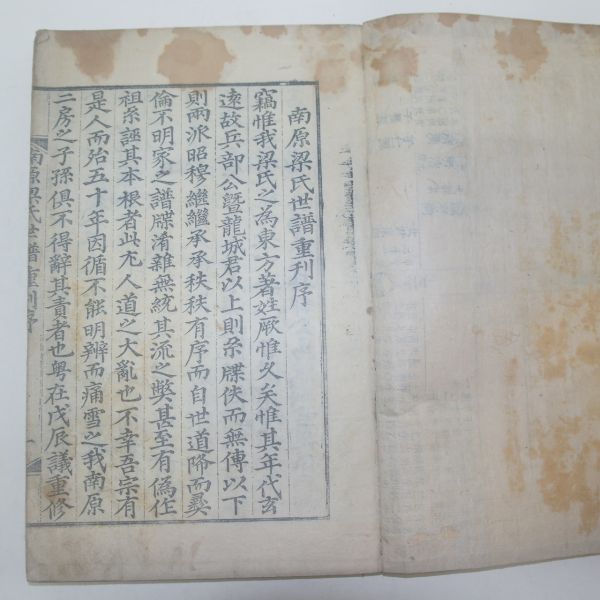 南原梁氏世譜重刊序
竊惟我梁氏之為東方著姓厥惟久矣惟其年代玄
遠故兵部公曁龍城君以上則系牒佚而無傳以下
則兩派昭穆繼繼承承秩秩有序而自世道降而彛
倫不明家之譜牒淆雜無統其流之獘甚至有僞作
祖系誣其本根者此尤人道之大亂也不幸吾宗有
是人而殆五十年因循不能明辨而痛雪之我南原
二房之子孫俱不得辭其責者也粤在戊辰議重修
南原梁氏世譜重刊序 一